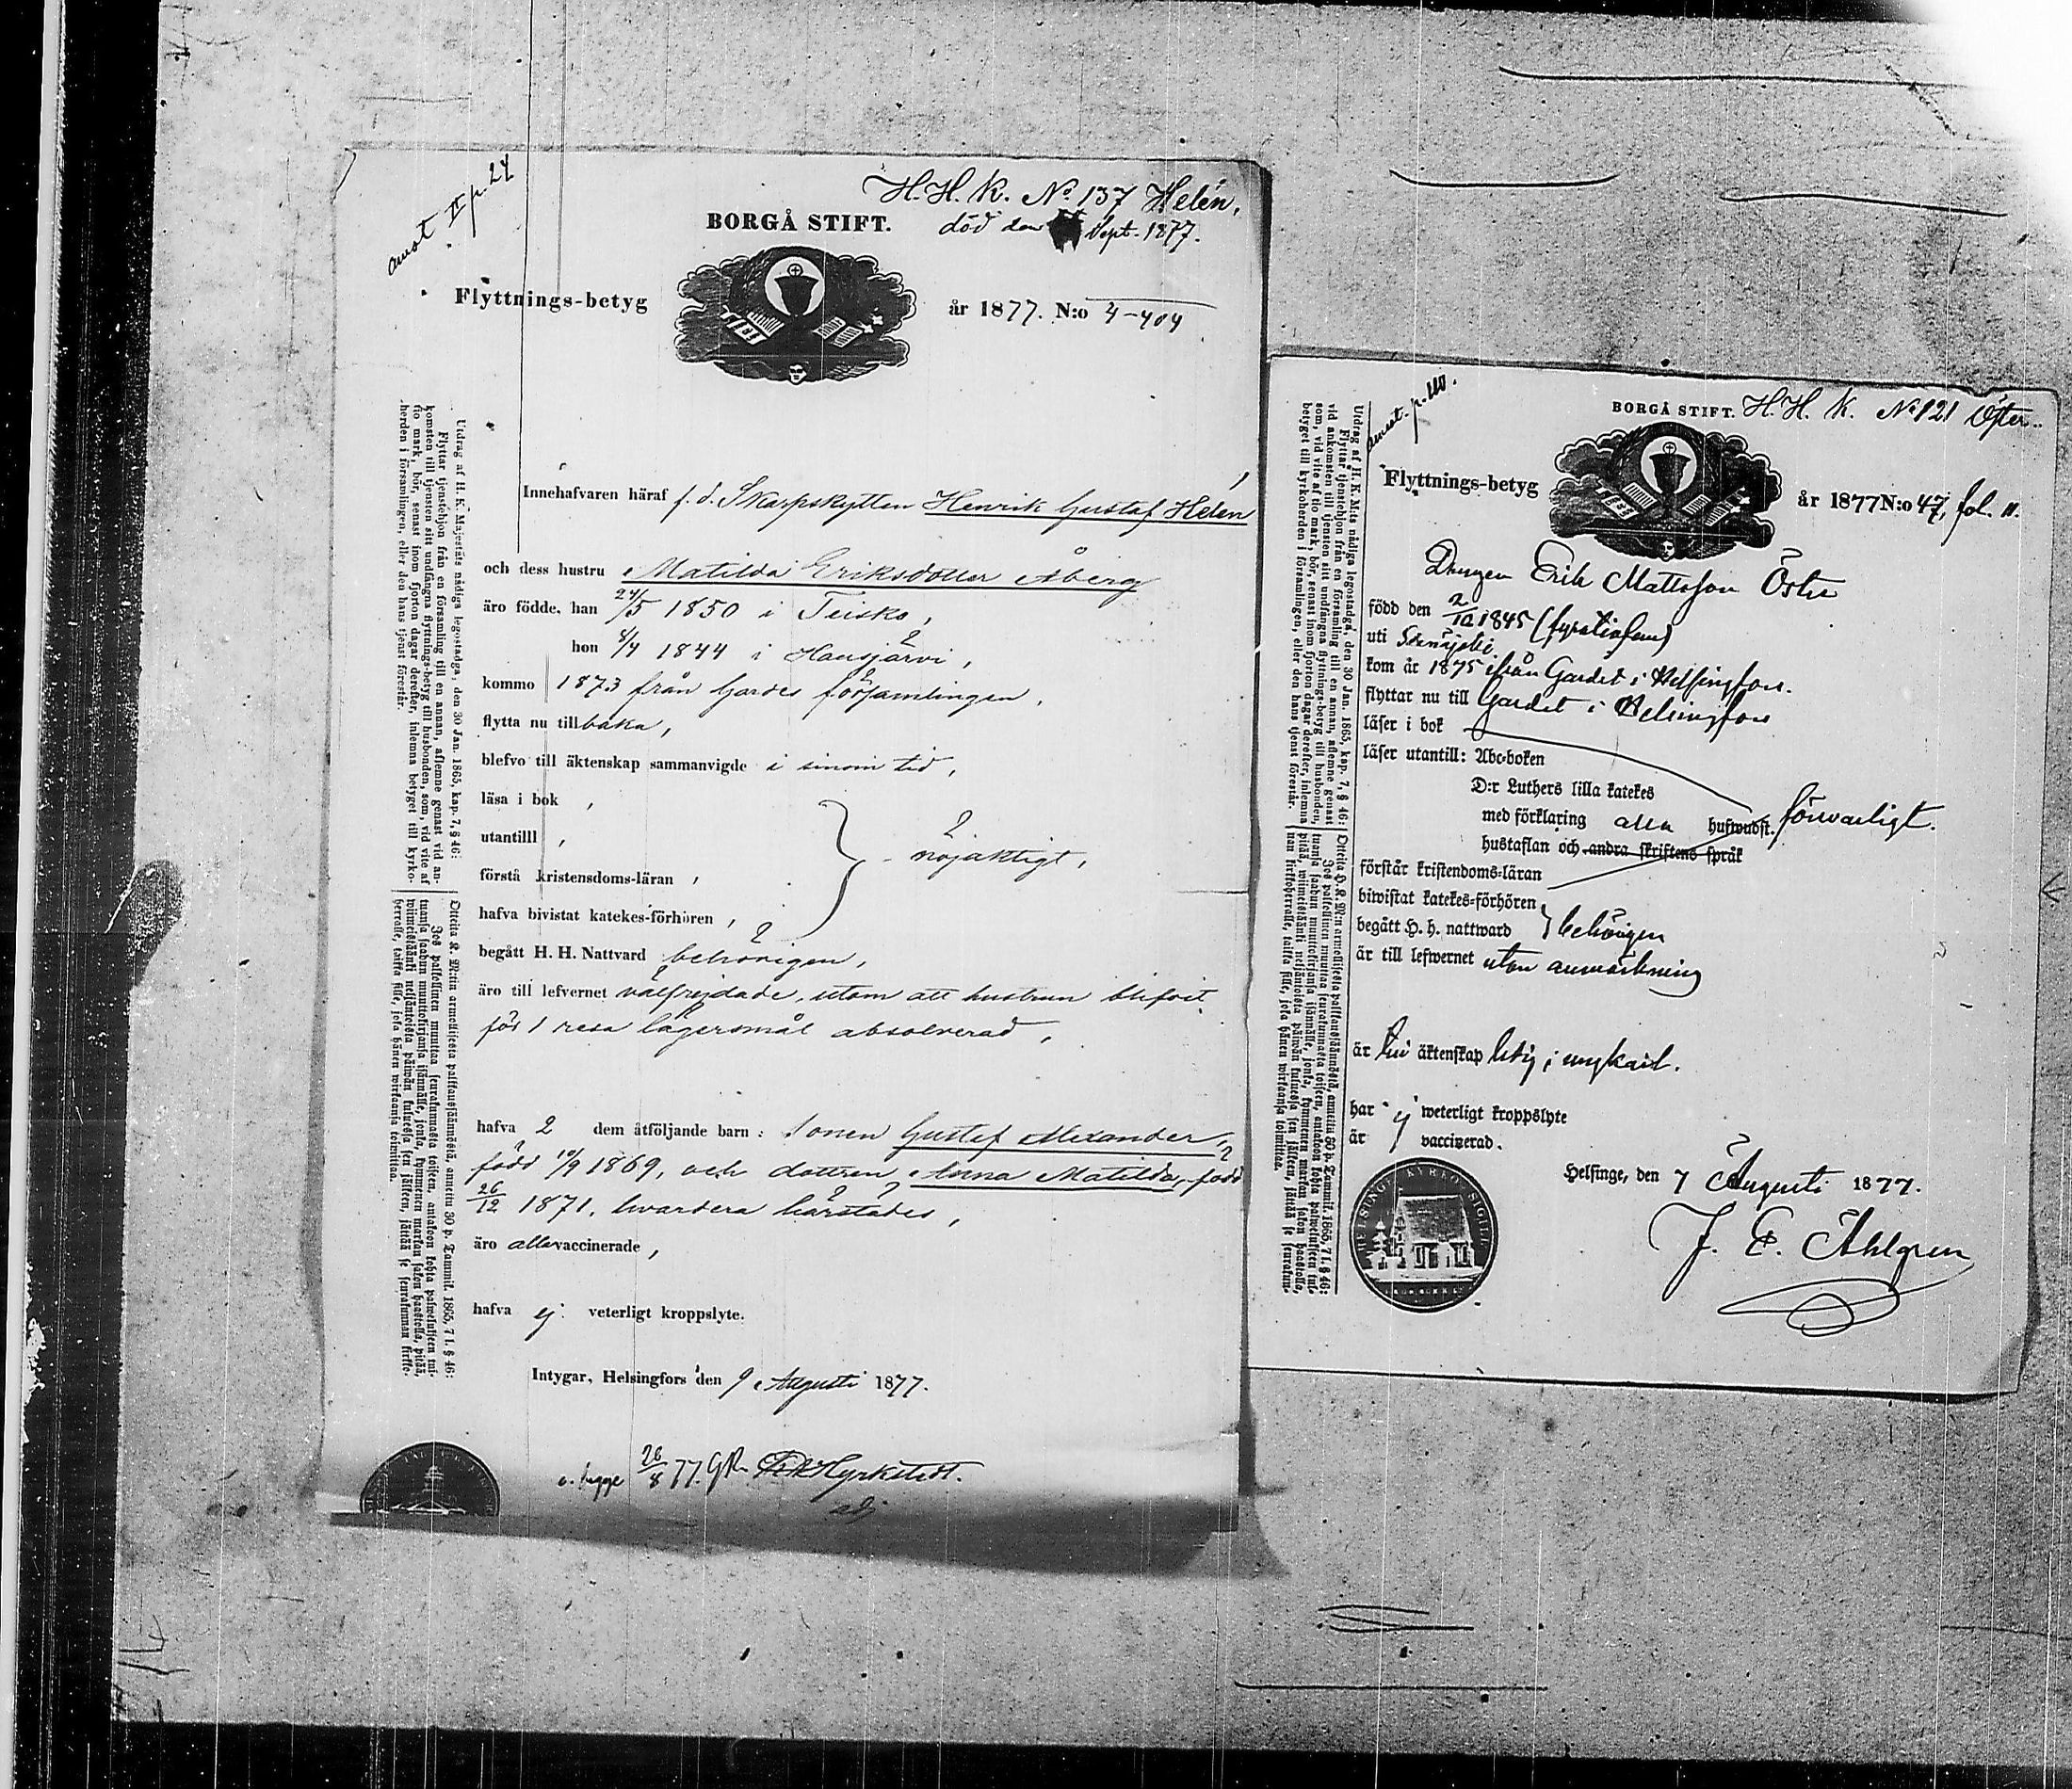 anot II p. 24
H. H. K. No 137 Helén.
BORGÅ STIFT.
död den Sept. 1877.
Flyttnings-betyg
år 1877. N:o 4-404
Innehafvaren häraf f. d. Skarpskytten Henrik Gustaf Helén
och dess hustru Matilda Eriksdotter Åberg
äro födde, han 24/5 1850 i Teisko,
hon 4/4 1844 i Hausjärvi,
kommo 1873 från Gardes församlingen,
flytta nu till baka,
blefvo till äktenskap sammanvigde i sinom tid,
läsa i bok ,
utantilll ,
förstå kristensdoms-läran ,
nöjaktigt,
hafva bivistat katekes-förhören ,
begått H. H. Nattvard behörigen,
äro till lefvernet välfrejdade, utom att hustrun blifvit
för 1 resa lägersmål absolverad,
hafva 2 dem åtföljande barn: sonen Gustaf Alexander,
född 10/9 1869, och dottren Anna Matilda, född
26/12 1871, hvardera härstädes,
äro alla vaccinerade,
hafva ej veterligt kroppslyte.
Intygar, Helsingfors den 9 Augusti 1877.
28/8 77. Hyrkstedt.
adj
Utdrag af H. K. Majestäts nådiga legostadga, den 30 Jan. 1865, kap. 7, § 46:
Flyttar tjenstehjon från en församling till en annan, aflemne genast vid an-
komsten till tjensten sitt undfångna flyttnings-betyg till husbonden, som, vid vite af
tio mark, bör, senast inom fjorton dagar derefter, inlemna betyget till kyrko-
herden i församlingen, eller den hans tjenst förestår.
BORGÅ STIFT. H. H. K. No 121 Öster.
Flyttnings-betyg
år 1877 N:o 47, fol. 11.
Drengen Erik Mattsson Östre
född den 2/10 1845 (fyratiofem)
uti
kom år 1875 ifrån Gardet i Helsingfors.
flyttar nu till Gardet i Helsingfors
läser i bok
läser utantill: Abc-boken
D:r Luthers lilla katekes
med förklaring alla hufwudst. försvarligt.
hustaflan och andra skriftens språk
förstår kristendoms-läran
biwistat katekes-förhören
begått H. H. nattward behörigen
är till lefwernet utan anmärkning
är till äktenskap ledig; ungkarl.
har ej weterligt kroppslyte
är vaccinerad.
Helsinge, den 7 Augusti 1877.
J. E. Åhlgren
Utdrag af H. K. M:ts nådiga legostadga, den 30 Jan. 1865, kap. 7, § 46:
Flyttar tjenstehjon från en församling till en annan, aflemne genast
vid ankomsten till tjensten sitt undfångna flyttnings-betyg till husbonden,
som, vid vite af tio mark, bör, senast inom fjorton dagar derefter, inlemna
betyget till kyrkoherden i församlingen, eller den hans tjenst förestår.